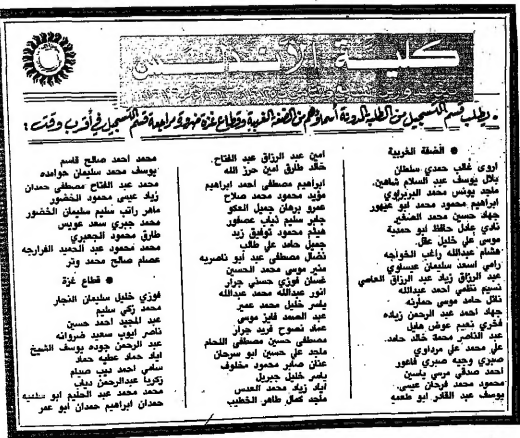 كلية الأندلس
• يطلب قسم التسجيل من الطلبة المدونة أسماؤهم من الضفة الغربية وقطاع غزة ضرورة مراجعة قسم التسجيل في أقرب وقت:
• الضفة الغربية
اروى غالب حمدي سلطان
بلال يوسف عبد السلام شاهين
ماجد يونس محمد البربراوي
ابراهيم محمود محمد ابو عيهور
جهاد حسين محمد الصغير
نادي عادل حافظ ابو حمدية
موسى علي خليل عقل
هشام عبدالله راغب الخواجه
رامي اسعد سليمان عيساوي
عبد الرزاق زياد عبد الرزاق العاصي
نسيم نظمي احمد عبدالله
نائل حامد موسى حمارنه
جهاد احمد عبد الرحمن زياده
فخري نعيم عوض هايل
عبد الناصر محمد خالد حامد
علي محمد علي مرداوي
صبري وجيه صبري قاعور
احمد صدقي مرسي ياسين
محمود محمد فرحان عيسى
يوسف عبد القادر ابو طعمه
امين عبد الرزاق عبد الفتاح
خالد طارق امين حرز الله
ابراهيم مصطفى احمد ابراهيم
مؤيد محمود محمد صلاح
عمرو برهان جميل العكو
جابر سليم ذياب عصفور
هيثم محمود توفيق زيد
جميل حامد علي طالب
نضال مصطفى عبد ابو ناصريه
منير موسى محمد الحسين
غسان فوزي حسني جرار
انور عبدالله محمد عبدالله
ياسر خليل محمد عمير
عبد الصمد فايز موسى
عماد نصوح فريد جرار
مصطفى حسين مصطفى اللحام
ماجد علي حسين ابو سرحان
عنان صابر محمود مخلوف
ياسر خليل جبريل
اياد زياد محمد العدس
ماجد كمال طاهر الخطيب
محمد احمد صالح قاسم
يوسف محمد سليمان حوامده
محمد عبد الفتاح مصطفى حمدان
زياد عيسى محمود الخضور
ماهر راتب سليم سليمان الخضور
محمد جبري سعد عويس
طارق محمود الجعبري
محمد محمود عبد الحميد الفرارجه
عصام صالح محمد وتر
• قطاع غزة
فوزي خليل سليمان النجار
محمد زكي سليم
عبد المجيد احمد حسين
ناصر ايوب سعيد ضروانه
عبد الرحمن جوده يوسف الشيخ
اياد حماد عطيه حماد
سامي احمد ديب صيام
زكريا عبدالرحمن دياب
محمد محمد عبد الحليم ابو سلميه
حمدان ابراهيم حمدان ابو عمر